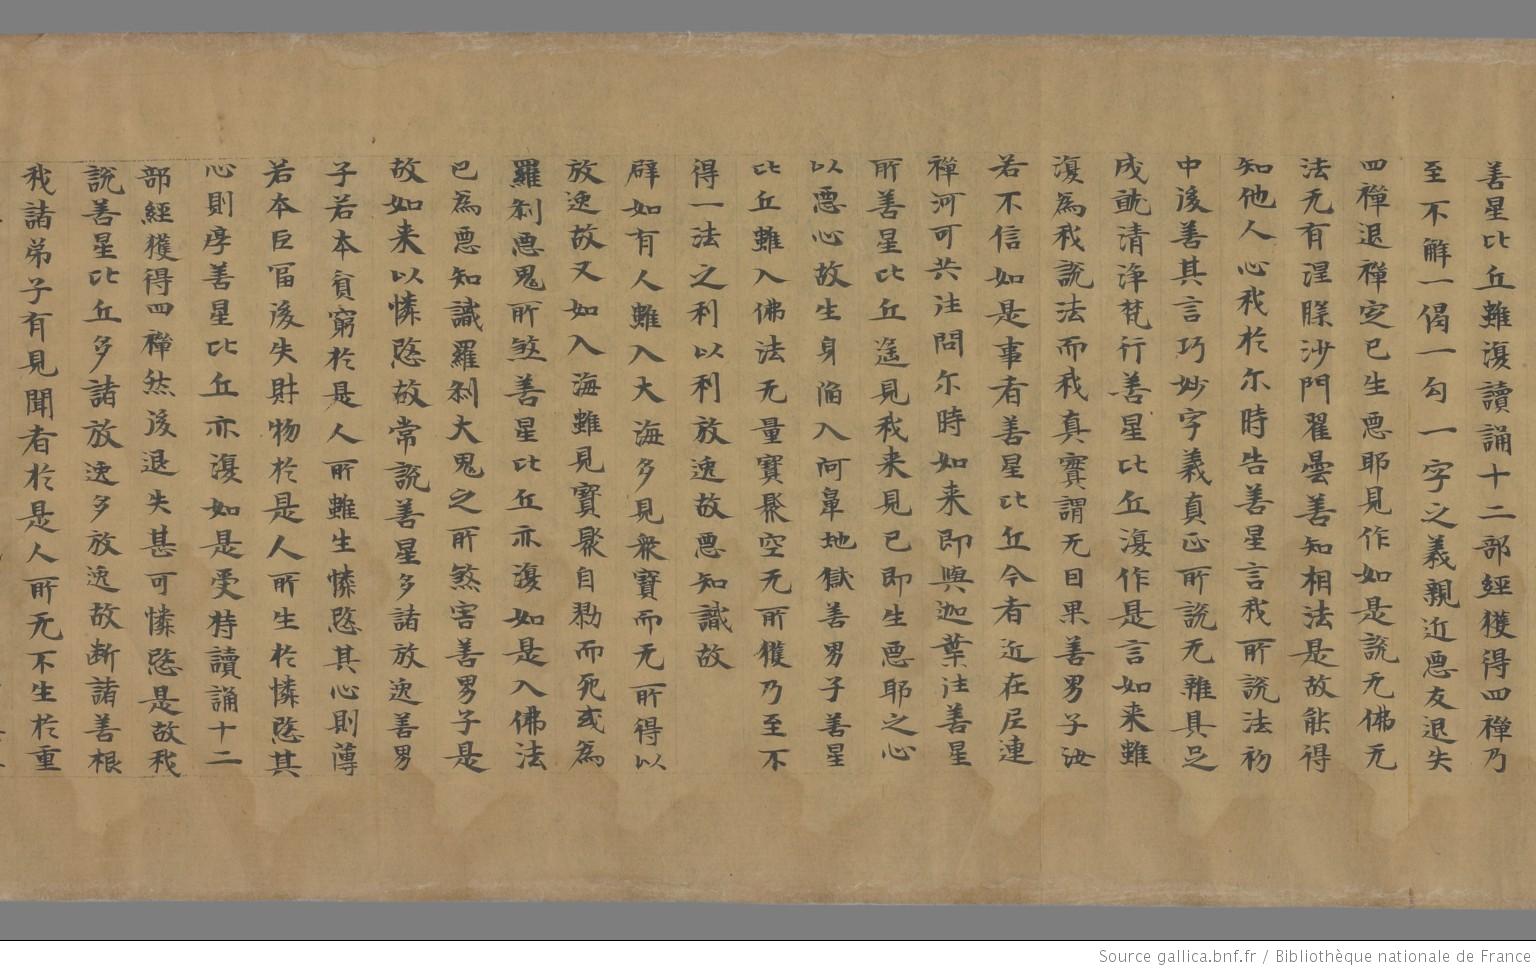 善星比丘雖復讀誦十二部經獲得四禪乃
至不解一偈一勾一字之義親近惡友退失
四禪退禪定已生惡耶見作如是說无佛无
法无有涅槃沙門瞿曇善知相法是故能得
知他人心我於尒時告善星言我所說法初
中後善其言巧妙字義真正所說无雜具足
成就清淨梵行善星比丘復作是言如来雖
復為我說法而我真實謂无因果善男子汝
若不信如是事者善星比丘今者近在尼連
禪河可共往問尒時如来即與迦葉往善星
所善星比丘遥見我来見已即生惡耶之心
以惡心故生身陷入阿鼻地獄善男子善星
比丘雖入佛法无量寶聚空无所獲乃至不
得一法之利以利放逸故惡知識故
辟如有人雖入大海多見衆寶而无所得以
放逸故又如入海雖見寶聚自勠而死或為
羅刹惡鬼所煞善星比丘亦復如是入佛法
已為惡知識羅刹大鬼之所煞害善男子是
故如来以憐愍故常說善星多諸放逸善男
子若本貧窮於是人所雖生憐愍其心則薄
若本巨富後失財物於是人所生於憐愍其
心則厚善星比丘亦復如是受持讀誦十二
部經獲得四禪然後退失甚可憐愍是故我
說善星比丘多諸放逸多放逸故断諸善根
我諸弟子有見聞者於是人所无不生於重
Source gallica.bnf.fr / Bibliothèque nationale de France